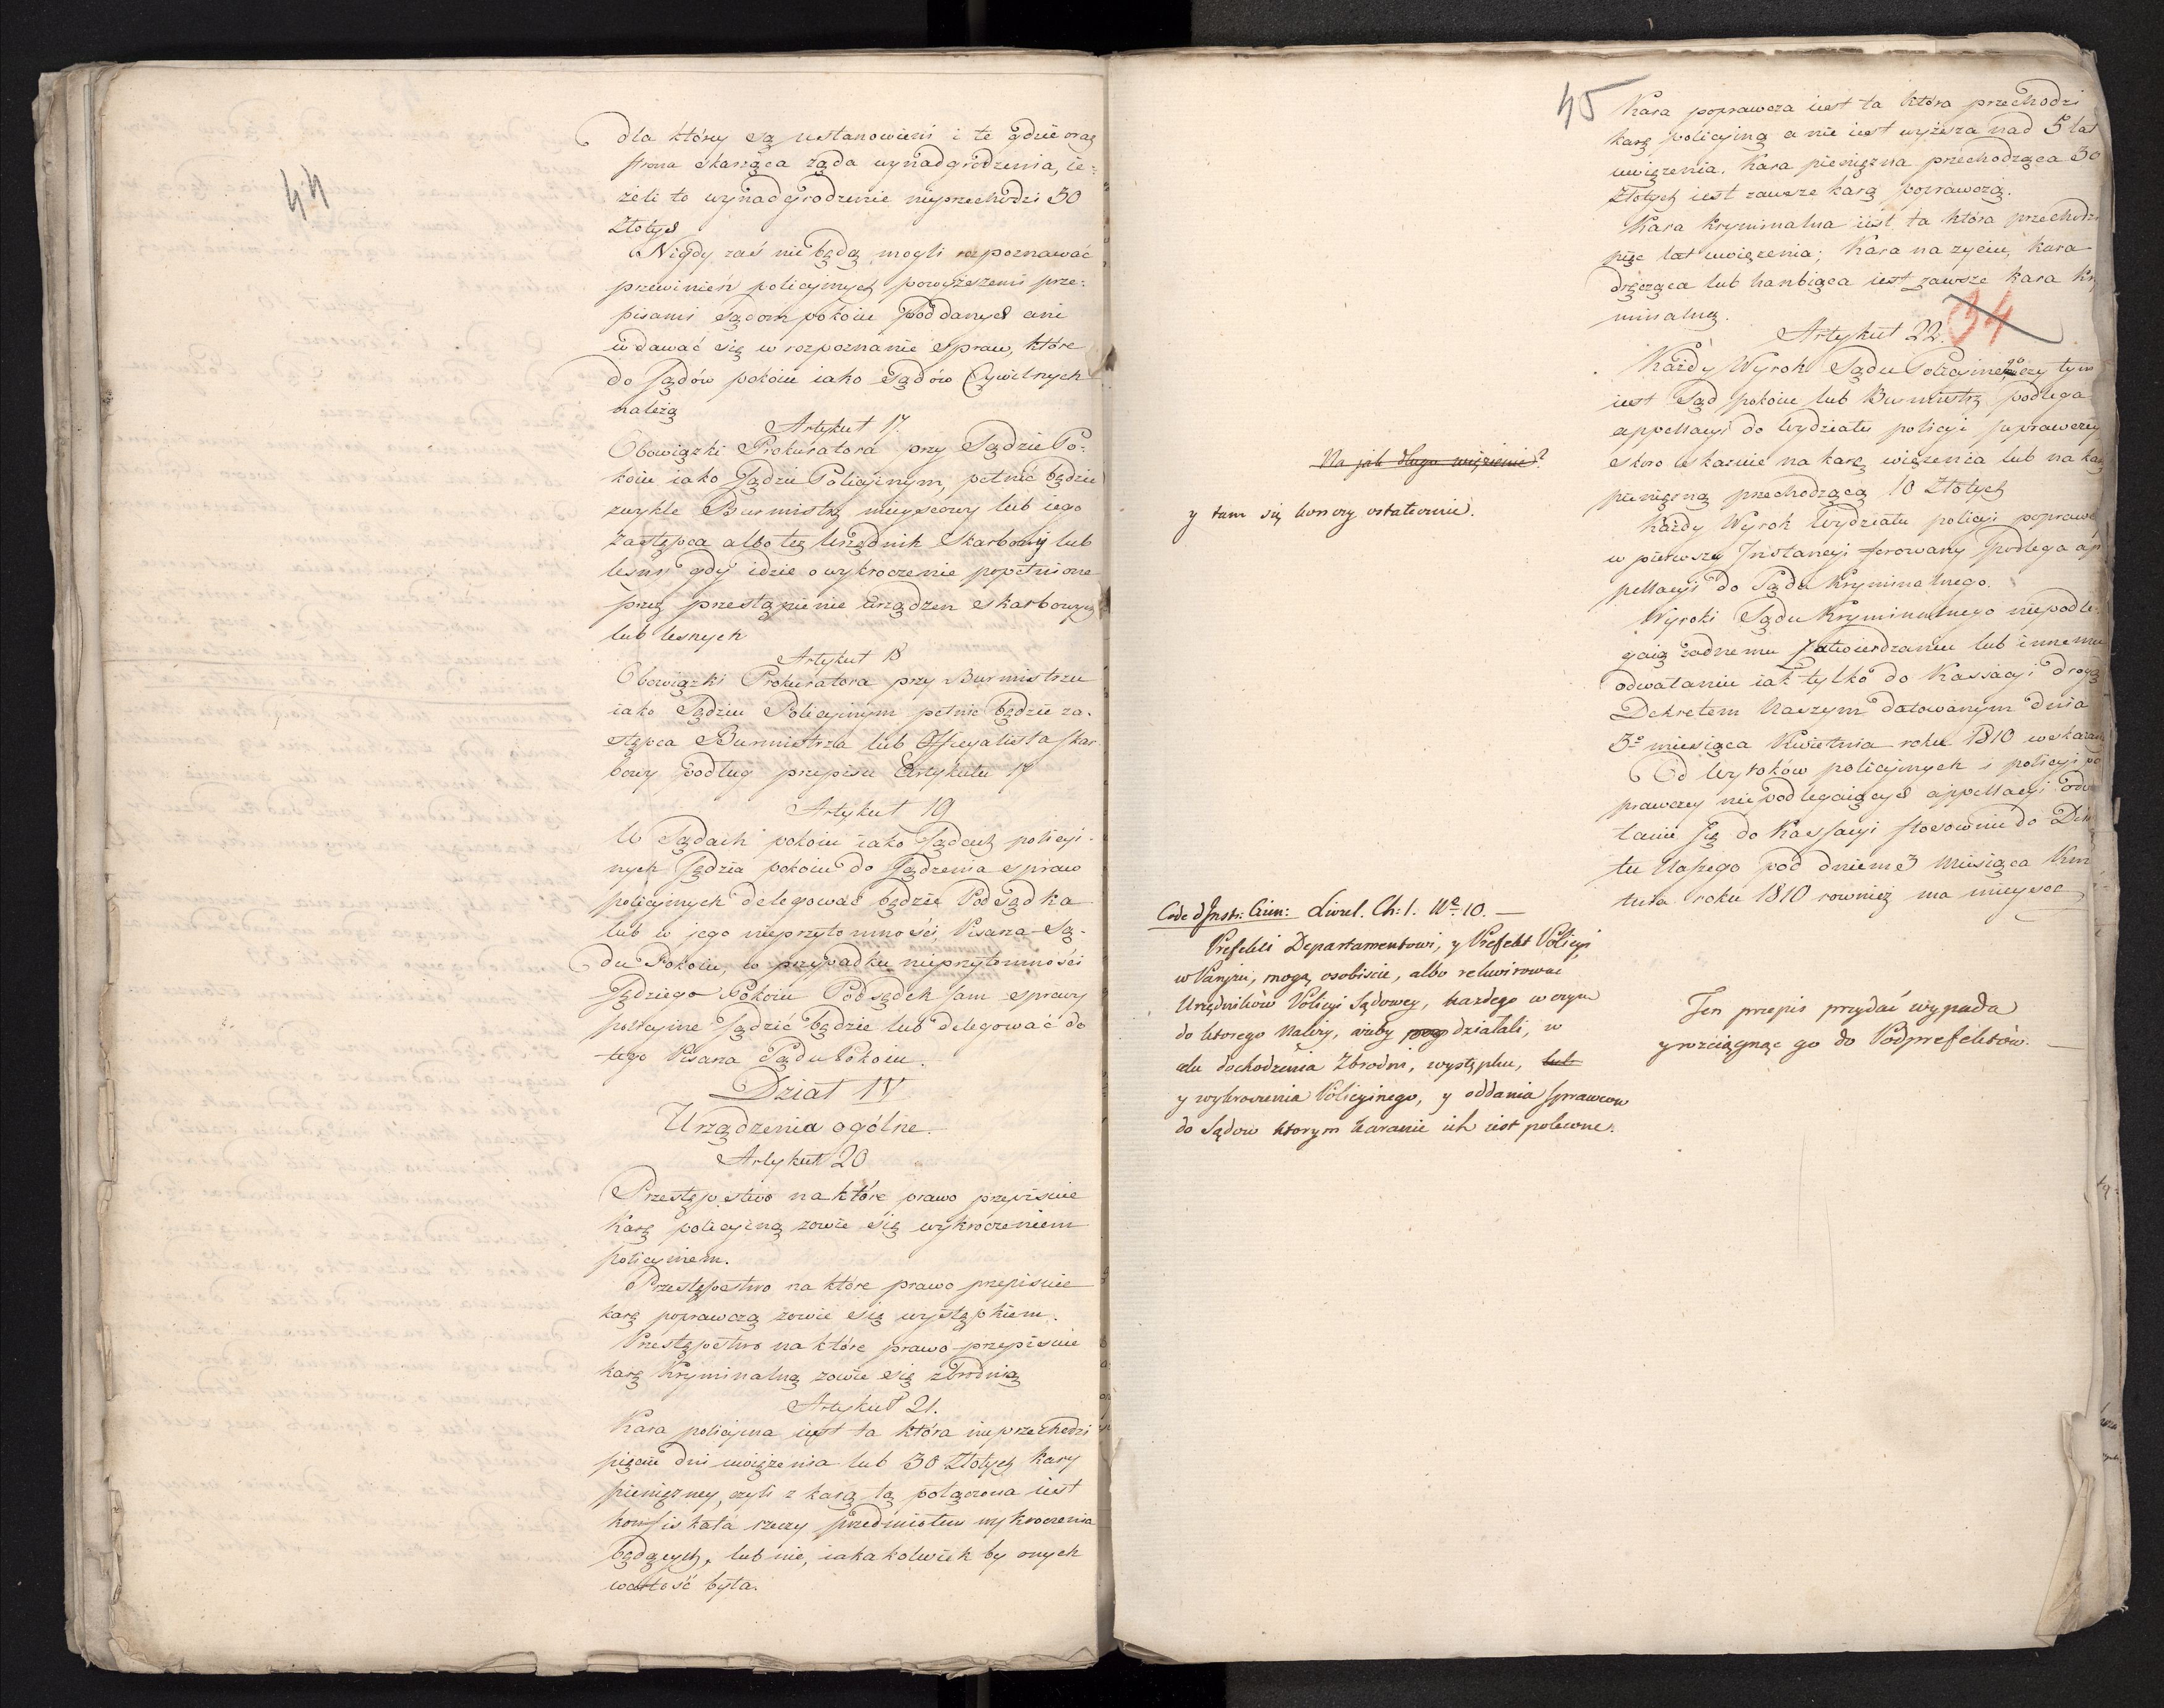 44
dla który są ustanowieni i te gdzie oraz
strona skarżąca żąda wynadgrodzenia, ie:
żeli to wynadgrodzenie nieprzechodzi 50
Złotych
Nigdy zaś nie będą mogli rozpoznawać
przewinień policyinych powyższemi prze:
pisami Sądom pokoiu poddanych ani
wdawać się w rozpoznanie spraw, które
do Sądów pokoiu iako Sądów Cywilnych
należą
Artykuł 17.
Obowiązki Prokuratora przy Sądzie Po:
koiu iako Sądzie Policyinym, pełnić będzie
zwykle Burmistrz mieyscowy lub iego
Zastępca albo też Urzędnik Skarbowy lub
leśny gdy idzie o wykroczenie popełnione
przez przestąpienie urządzeń skarbowych
lub leśnych
Artykuł 18
Obowiązki Prokuratora przy Burmistrzu
iako Sędziu Policyinym pełnić będzie za:
stępca Burmistrza lub Officyalista skar
bowy podług przepisu Artykułu 17
Artykuł 19
W Sądach pokoiu iako Sądach policyi:
nych Sędzia pokoiu do Sądzenia spraw
policyinych delegować będzie Podsędka
lub w jego nieprzytomności, Pisarza Są:
du Pokoiu, w przypadku nieprzytomności
Sędziego Pokoiu Podsędek sam sprawy
policyine sądzić będzie lub delegować do
tego Pisarza Sądu Pokoiu.
Dział IV
Urządzenia ogólne.
Artykuł 20
Przestępstwo na które prawo przepisuie
Karę policyiną zowie się wykroczeniem
policyinem.
Przestępstwo na które prawo przepisuie
karę poprawczą zowie się występkiem.
Przestępstwo na które prawo przepisuie
karę Kryminalną zowie się zbrodnią
Artykuł 21.
Kara policyina iest ta która nieprzechodzi
pięciu dni więzienia lub 50 Złotych kary
pieniężney, czyli z karą tą połączona iest
konfiskata rzeczy przedmiotem wykroczenia
będących, lub nie, iakakolwiek by onych
wartość była.
45
Kara poprawcza iest ta która przechodzi
karę policyiną a nie iest wyższa nad 5 lat
więzienia. Kara pieniężna przechodząca 50
Złotych iest zawsze karą poprawczą.
Kara Kryminalna iest ta która przechodzi
pięć lat więzienia; Kara na życiu, kara
dręcząca lub hańbiąca iest zawsze kara kry
minalną.
34
Artykuł 22.
Każdy Wyrok Sądu Policyinego czy tym
iest Sąd pokoiu lub Burmistrz podlega
appellacyi do Wydziału policyi poprawczey
skoro wskazuie na karę więzienia lub na karę
pieniężną przechodzącą 10 Złotych
Na jak długo więzienie?
y tam się kończy ostatecznie.
Każdy Wyrok Wydziału policyi poprawcz
w pierwszey Instancyi ferowany podlega ap
pellacyi do Sądu Kryminalnego.
Wyroki Sądu Kryminalnego niepodle:
gaią żadnemu zatwierdzaniu lub innemu
odwołaniu iak tylko do Kassacyi drogą
Dekretem Naszym datowanym dnia
3º miesiąca Kwietnia roku 1810 wskazaną
Od Wyroków policyinych i policyi po
prawczey niepodlegaiących appellacyi odwo
łanie się do Kassacyi stosownie do Dekre
tu Naszego pod dniem 3 Miesiąca Kwie
tnia roku 1810 również ma mieysce
Code d'Instr: Crim: Livre 1. Ch: 1. Nº 10. —
Prefekci Departamentowi, y Prefekt Policyi
w Paryżu, mogą osobiście, albo rekwirować
Urzędników Policyi Sądowey, każdego w czym
do którego należy, ażeby działali, w
celu dochodzenia Zbrodni, występku, lub
y wykroczenia Policyinego, y oddania sprawcow
do Sądow ktorym karanie ich iest polecone.
Ten przepis przydać wypada
y rozciągnąć go do Podprefektów. —